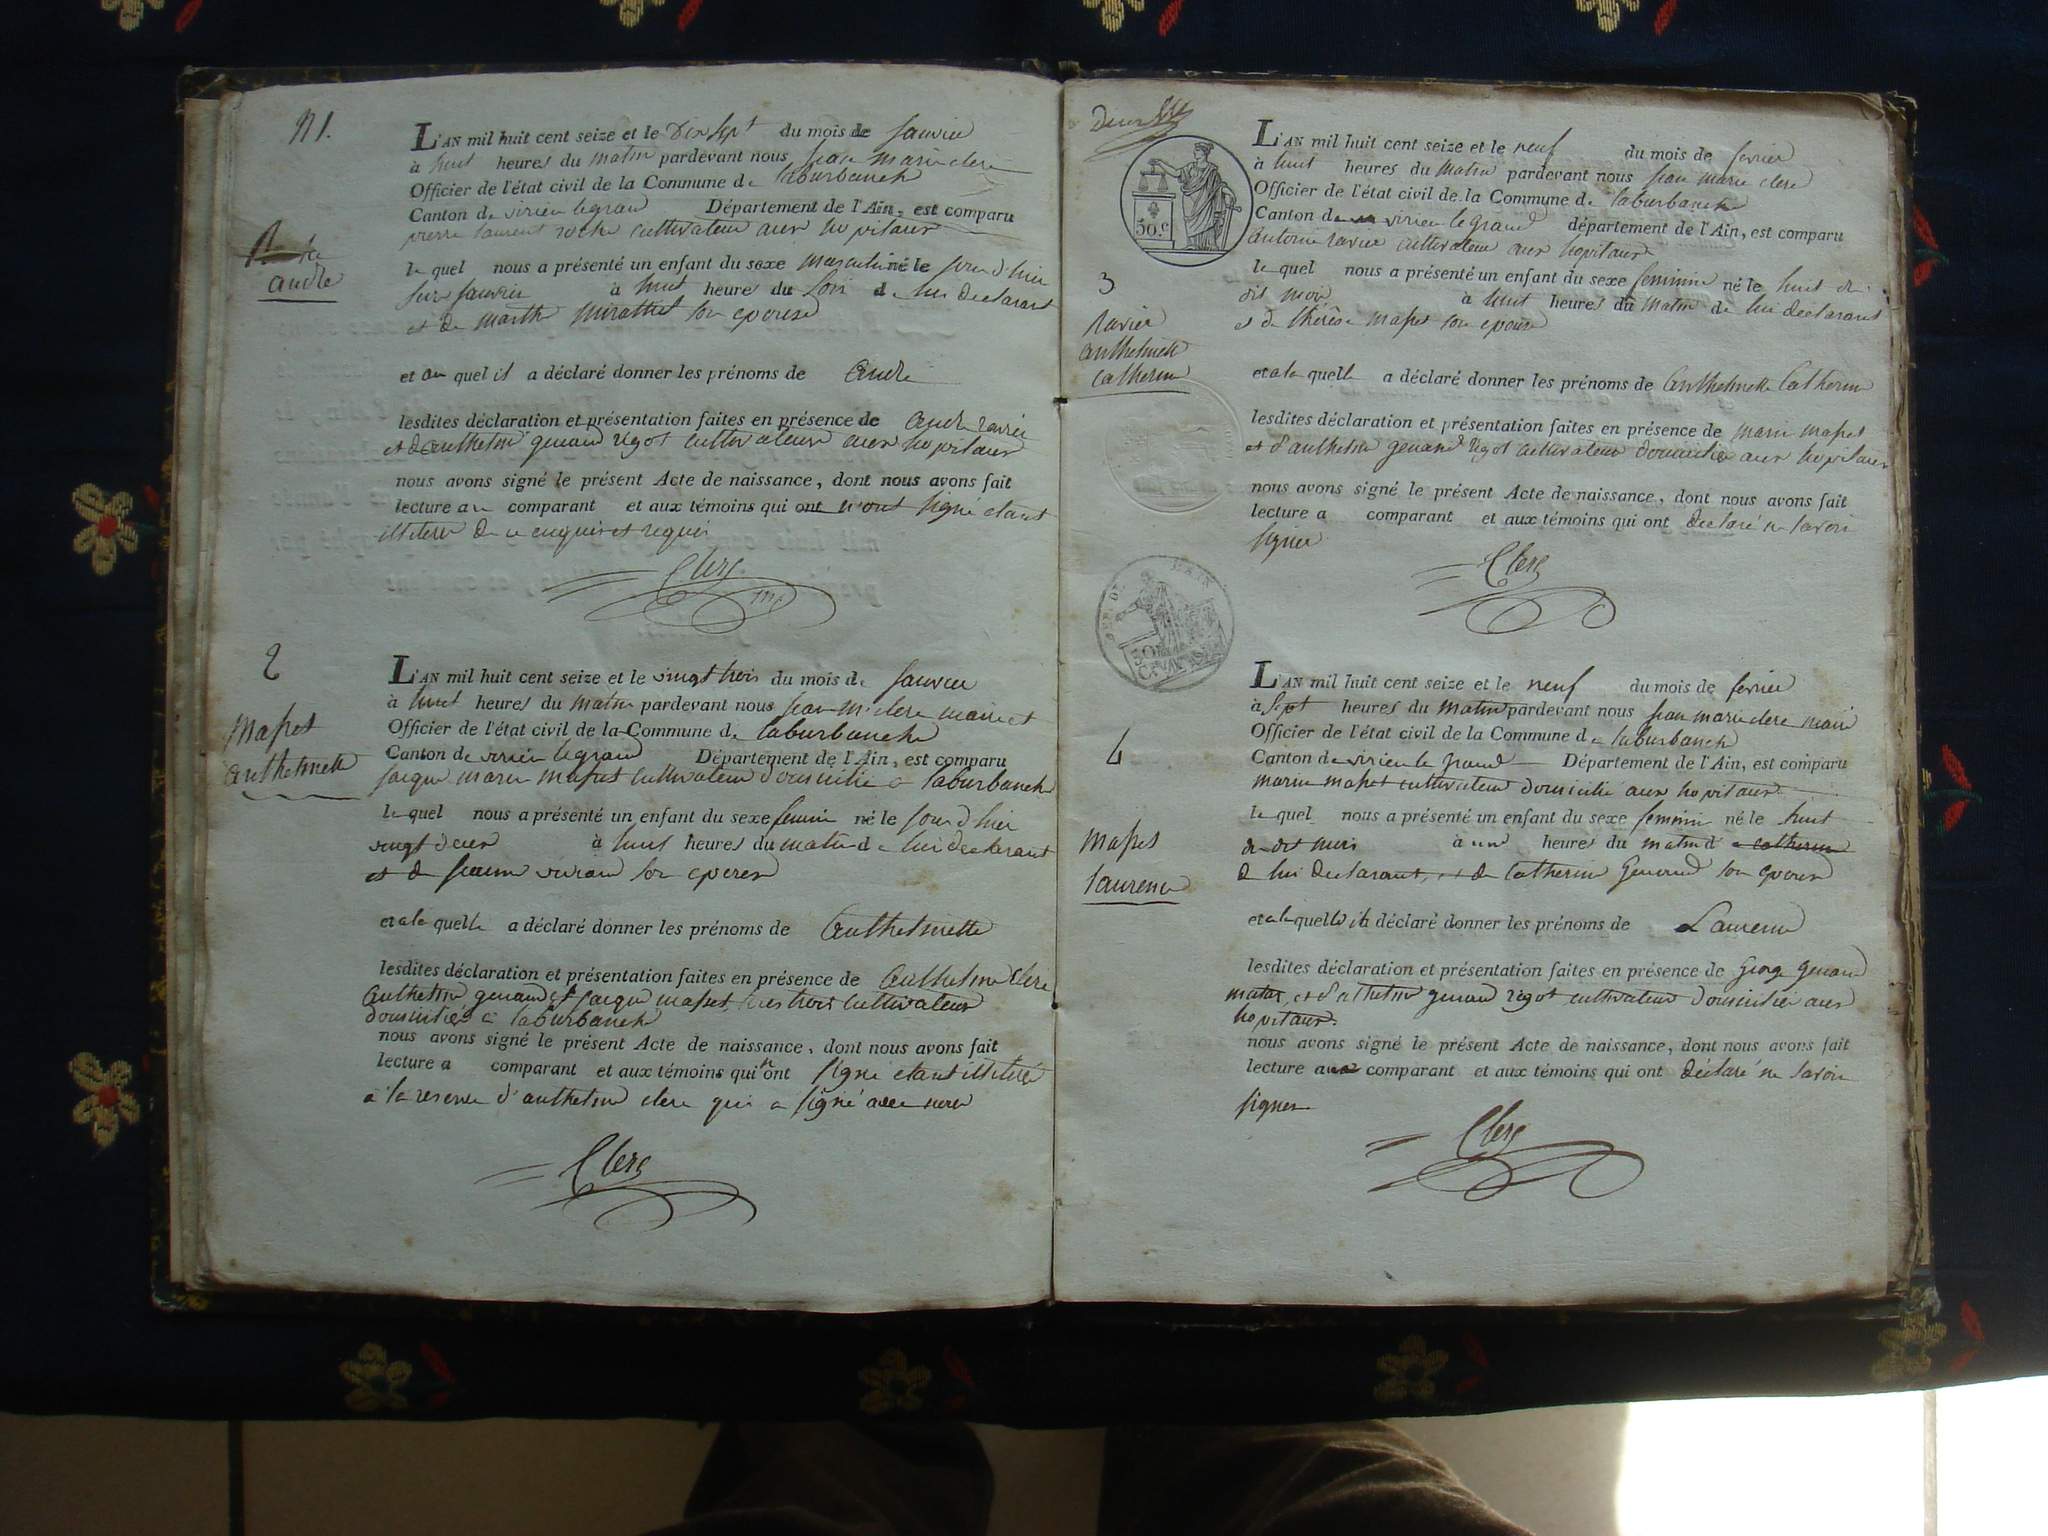 N 1.
L'AN mil huit cent seize et le dix sept du mois de janvier
à huit heures du matin pardevant nous jean marie clerc
Officier de l'état civil de la Commune de laburbanche
Canton de virieu legrand Département de l'Ain, est comparu
pierre laurent roche cultivateur aux hopitaux
Roche
andré
le quel nous a présenté un enfant du sexe masculin né le jour d'hier
janvier à huit heures du soir de lui declarant
et de marthe son epouse
et au quel il a déclaré donner les prénoms de andré
lesdites déclaration et présentation faites en présence de andré ravier
et d'anthelme genand rigot cultivateurs aux hopitaux
nous avons signé le présent Acte de naissance, dont nous avons fait
lecture au comparant et aux témoins qui ont n'ont signé etant
illiteré de ce enquis et requis
Clerc
2
L'AN mil huit cent seize et le vingt trois du mois de janvier
à huit heures du matin pardevant nous jean m. clerc maire et
Officier de l'état civil de la Commune de laburbanche
Canton de virieu legrand Département de l'Ain, est comparu
jacque marin mapet cultivateur domicilié a laburbanche
mapet
anthelmette
le quel nous a présenté un enfant du sexe feminin né le jour d'hier
vingt deux à huit heures du matin de lui declarant
et de jeanne son epouse
et a la quelle a déclaré donner les prénoms de anthelmette
lesdites déclaration et présentation faites en présence de anthelme clerc
anthelme genand et jacque mapet, tous trois cultivateurs
domiciliés a laburbanche
nous avons signé le présent Acte de naissance, dont nous avons fait
lecture a comparant et aux témoins qui n'ont signé etant illiteré
a la reserve d'anthelme clerc qui a signé avec nous
Clerc
50.c
L'AN mil huit cent seize et le neuf du mois de fevrier
à huit heures du matin pardevant nous jean marie clerc
Officier de l'état civil de la Commune de laburbanche
Canton de virieu legrand département de l'Ain, est comparu
antoine ravier cultivateur aux hopitaux
3
ravier
anthelmette
catherine
le quel nous a présenté un enfant du sexe feminin né le huit du
dit mois à huit heures du matin de lui declarant
et de thérèse mapet son epouse
et a la quelle a déclaré donner les prénoms de anthelmette catherine
lesdites déclaration et présentation faites en présence de marin mapet
et d'anthelme genand rigot cultivateurs domiciliés aux hopitaux
nous avons signé le présent Acte de naissance, dont nous avons fait
lecture a comparant et aux témoins qui ont declaré ne savoir
signer
Clerc
L'AN mil huit cent seize et le neuf du mois de fevrier
à sept heures du matin pardevant nous jean marie clerc maire
Officier de l'état civil de la Commune de laburbanche
Canton de virieu le grand Département de l'Ain, est comparu
marin mapet cultivateur domicilié aux hopitaux
4
mapet
laurence
le quel nous a présenté un enfant du sexe feminin né le huit
du dit mois à une heures du matin de catherine
de lui declarant, et de catherine genand son epouse
et a la quelle il a déclaré donner les prénoms de Laurence
lesdites déclaration et présentation faites en présence de George genand
et d'athelme genand rigot cultivateurs domiciliés aux
hopitaux.
nous avons signé le présent Acte de naissance, dont nous avons fait
lecture aux comparant et aux témoins qui ont déclaré ne savoir
signer
Clerc